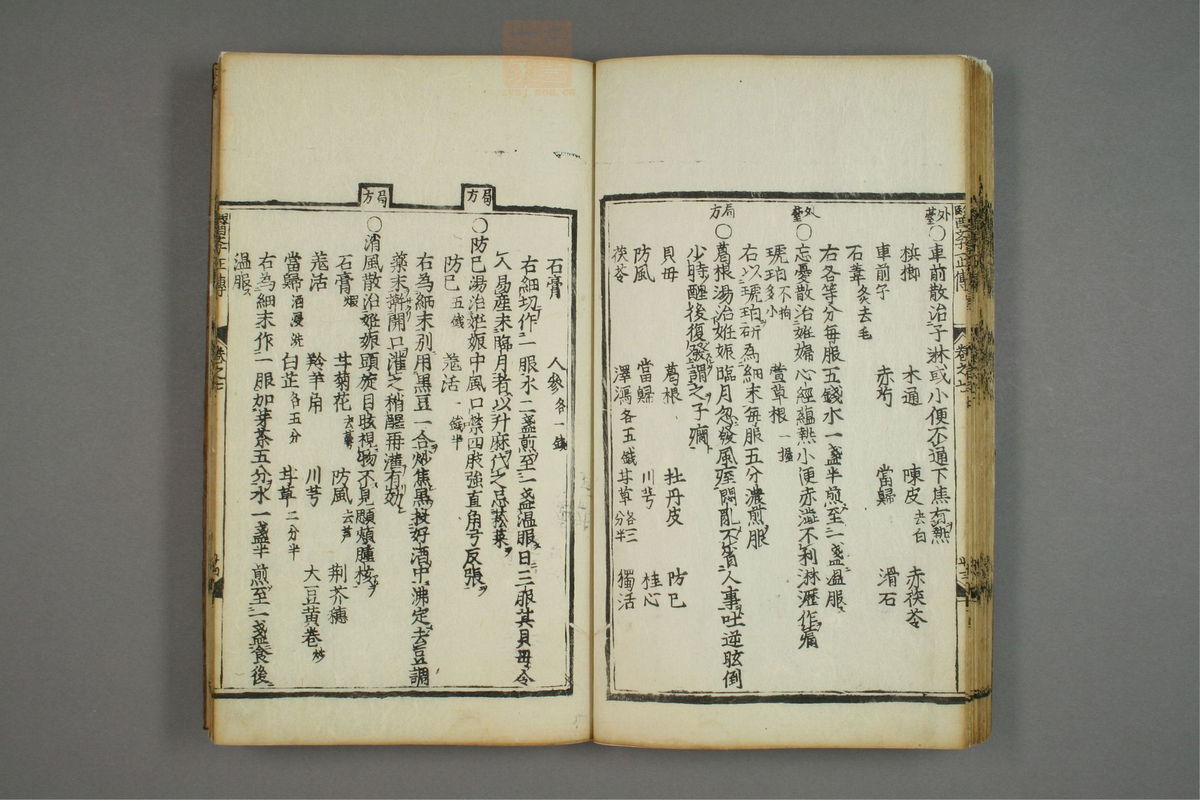 外臺
○車前散治子淋或小便不通下焦有熱
檳榔 木通 陳皮去白 赤茯苓
車前子 赤芍 當歸 滑石
石韋炙去毛
右各等分每服五錢水一盞半煎至一盞温服
外臺
○忘憂散治姙婦心經蘊熱小便赤澁不利淋瀝作痛
琥珀不拘多小 萱草根一握
右以琥珀研為細末每服五分濃煎服
局方
○葛根湯治姙娠臨月忽發風痙悶亂不省人事吐逆眩倒
少時醒後復發謂之子癇
貝母 葛根 牡丹皮 防已
防風 當歸 川芎 桂心
茯苓 澤瀉各五錢 甘草各三分半 獨活
石膏 人參各一錢
右細切作一服水二盞煎至一盞温服日三服其貝母令
人易産未臨月者以升麻代之忌菘菜
局方
○防已湯治姙娠中風口噤四肢強直角弓反張
防已五錢 羗活一錢半
右為細末別用黑豆一合炒焦黑投好酒中沸定去豆調
藥末擀開口灌之稍醒再灌有効
局方
○消風散治姙娠頭旋目眩視物不見顋頰腫核
石膏煆 甘菊花去蕚 防風去芦 荆芥穗
羗活 羚羊角 川芎 大豆黄卷炒
當歸酒浸洗 白芷各五分 甘草二分半
右為細末作一服加芽茶五分水一盞半煎至一盞食後
温服
醫學正傳
卷之七